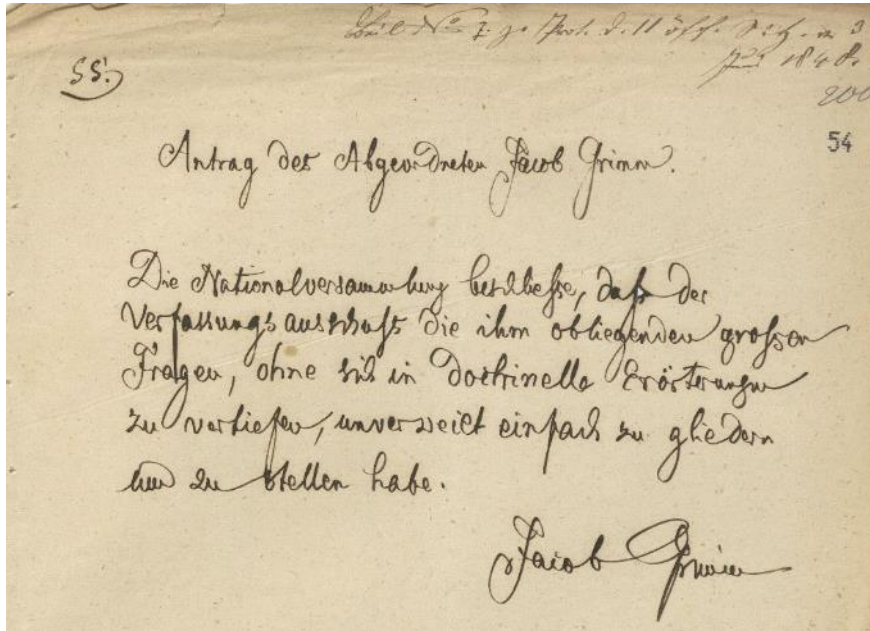 Beil. No 7. z. Prot. d. 11 öff. Sitz. v. 3
Juni 1848.
200
55.
54
Antrag des Abgeordneten Jacob Grimm.
Die Nationalversammlung beschliesse, dass der
Verfassungsausschuss die ihm obliegenden grossen
Fragen, ohne sich in doctrinelle Erörterungen
zu vertiefen, unverweilt einfach zu gliedern
und zu stellen habe.
Jacob Grimm